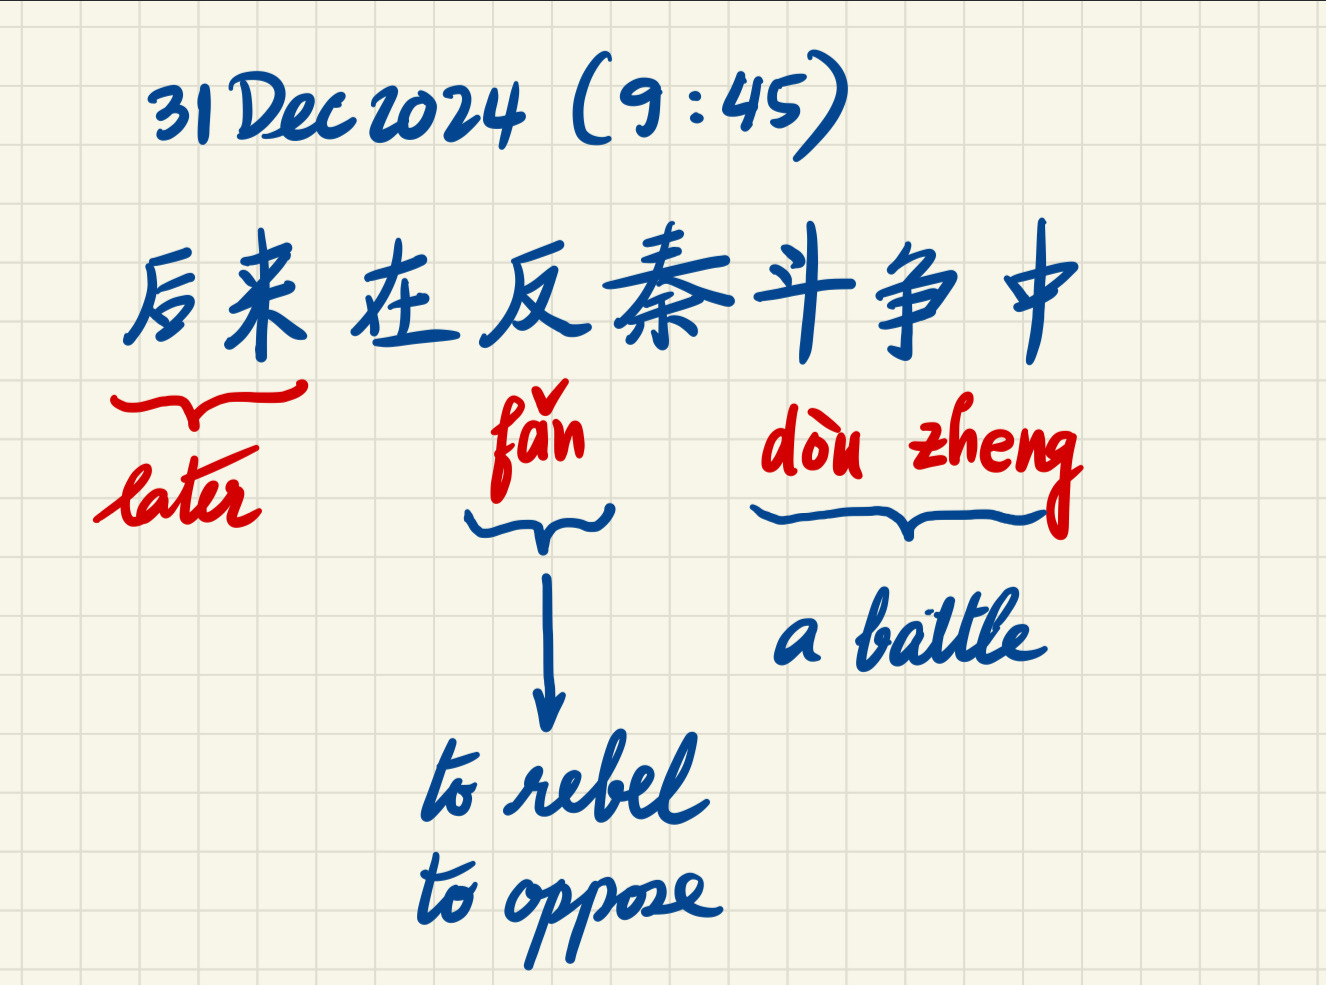 31 Dec 2024 (9:45)
后来在反秦斗争中
later fǎn dòu zheng
a battle
to rebel
to oppose